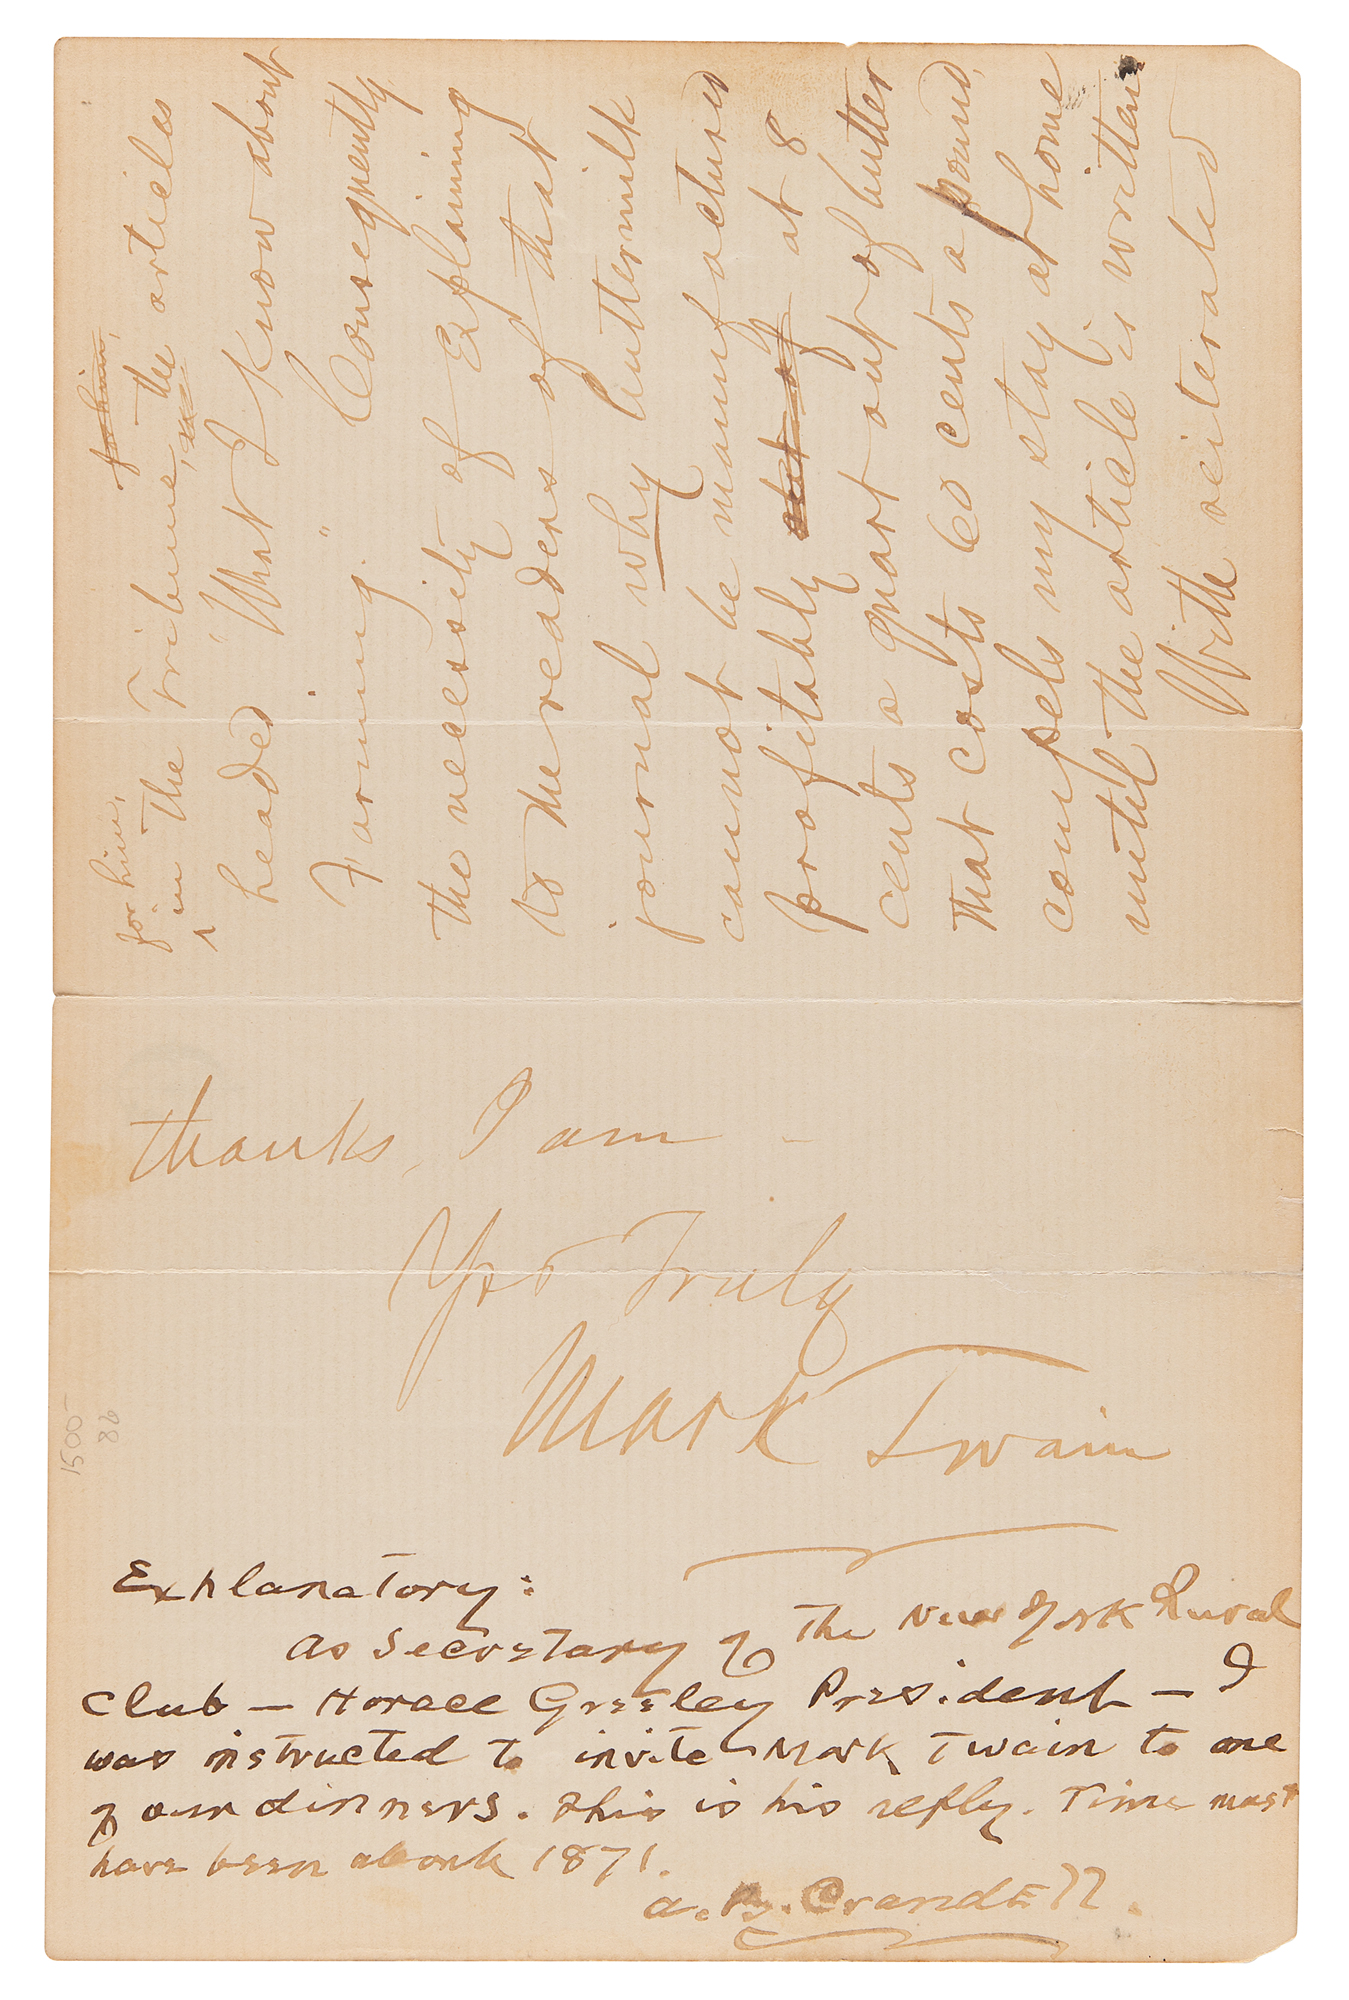 for him, for him,
in the Tribune, in the articles
headed "What I Know about
Farming." Consequently
the necessity of Explaining
to the readers of that
journal why buttermilk
cannot be manufactured
profitably out of at 8
cents a quart out of butter
that costs 60 cents a pound,
compels my stay at home
until the article is written
With reiterated
thanks, I am –
Yrs Truly
Mark Twain
1500–
86
Explanatory:
As Secretary of the New York Rural
Club – Horace Greeley President – I
was instructed to invite Mark Twain to one
of our dinners. This is his reply. Time must
have been about 1871.
A. B. Crandell.